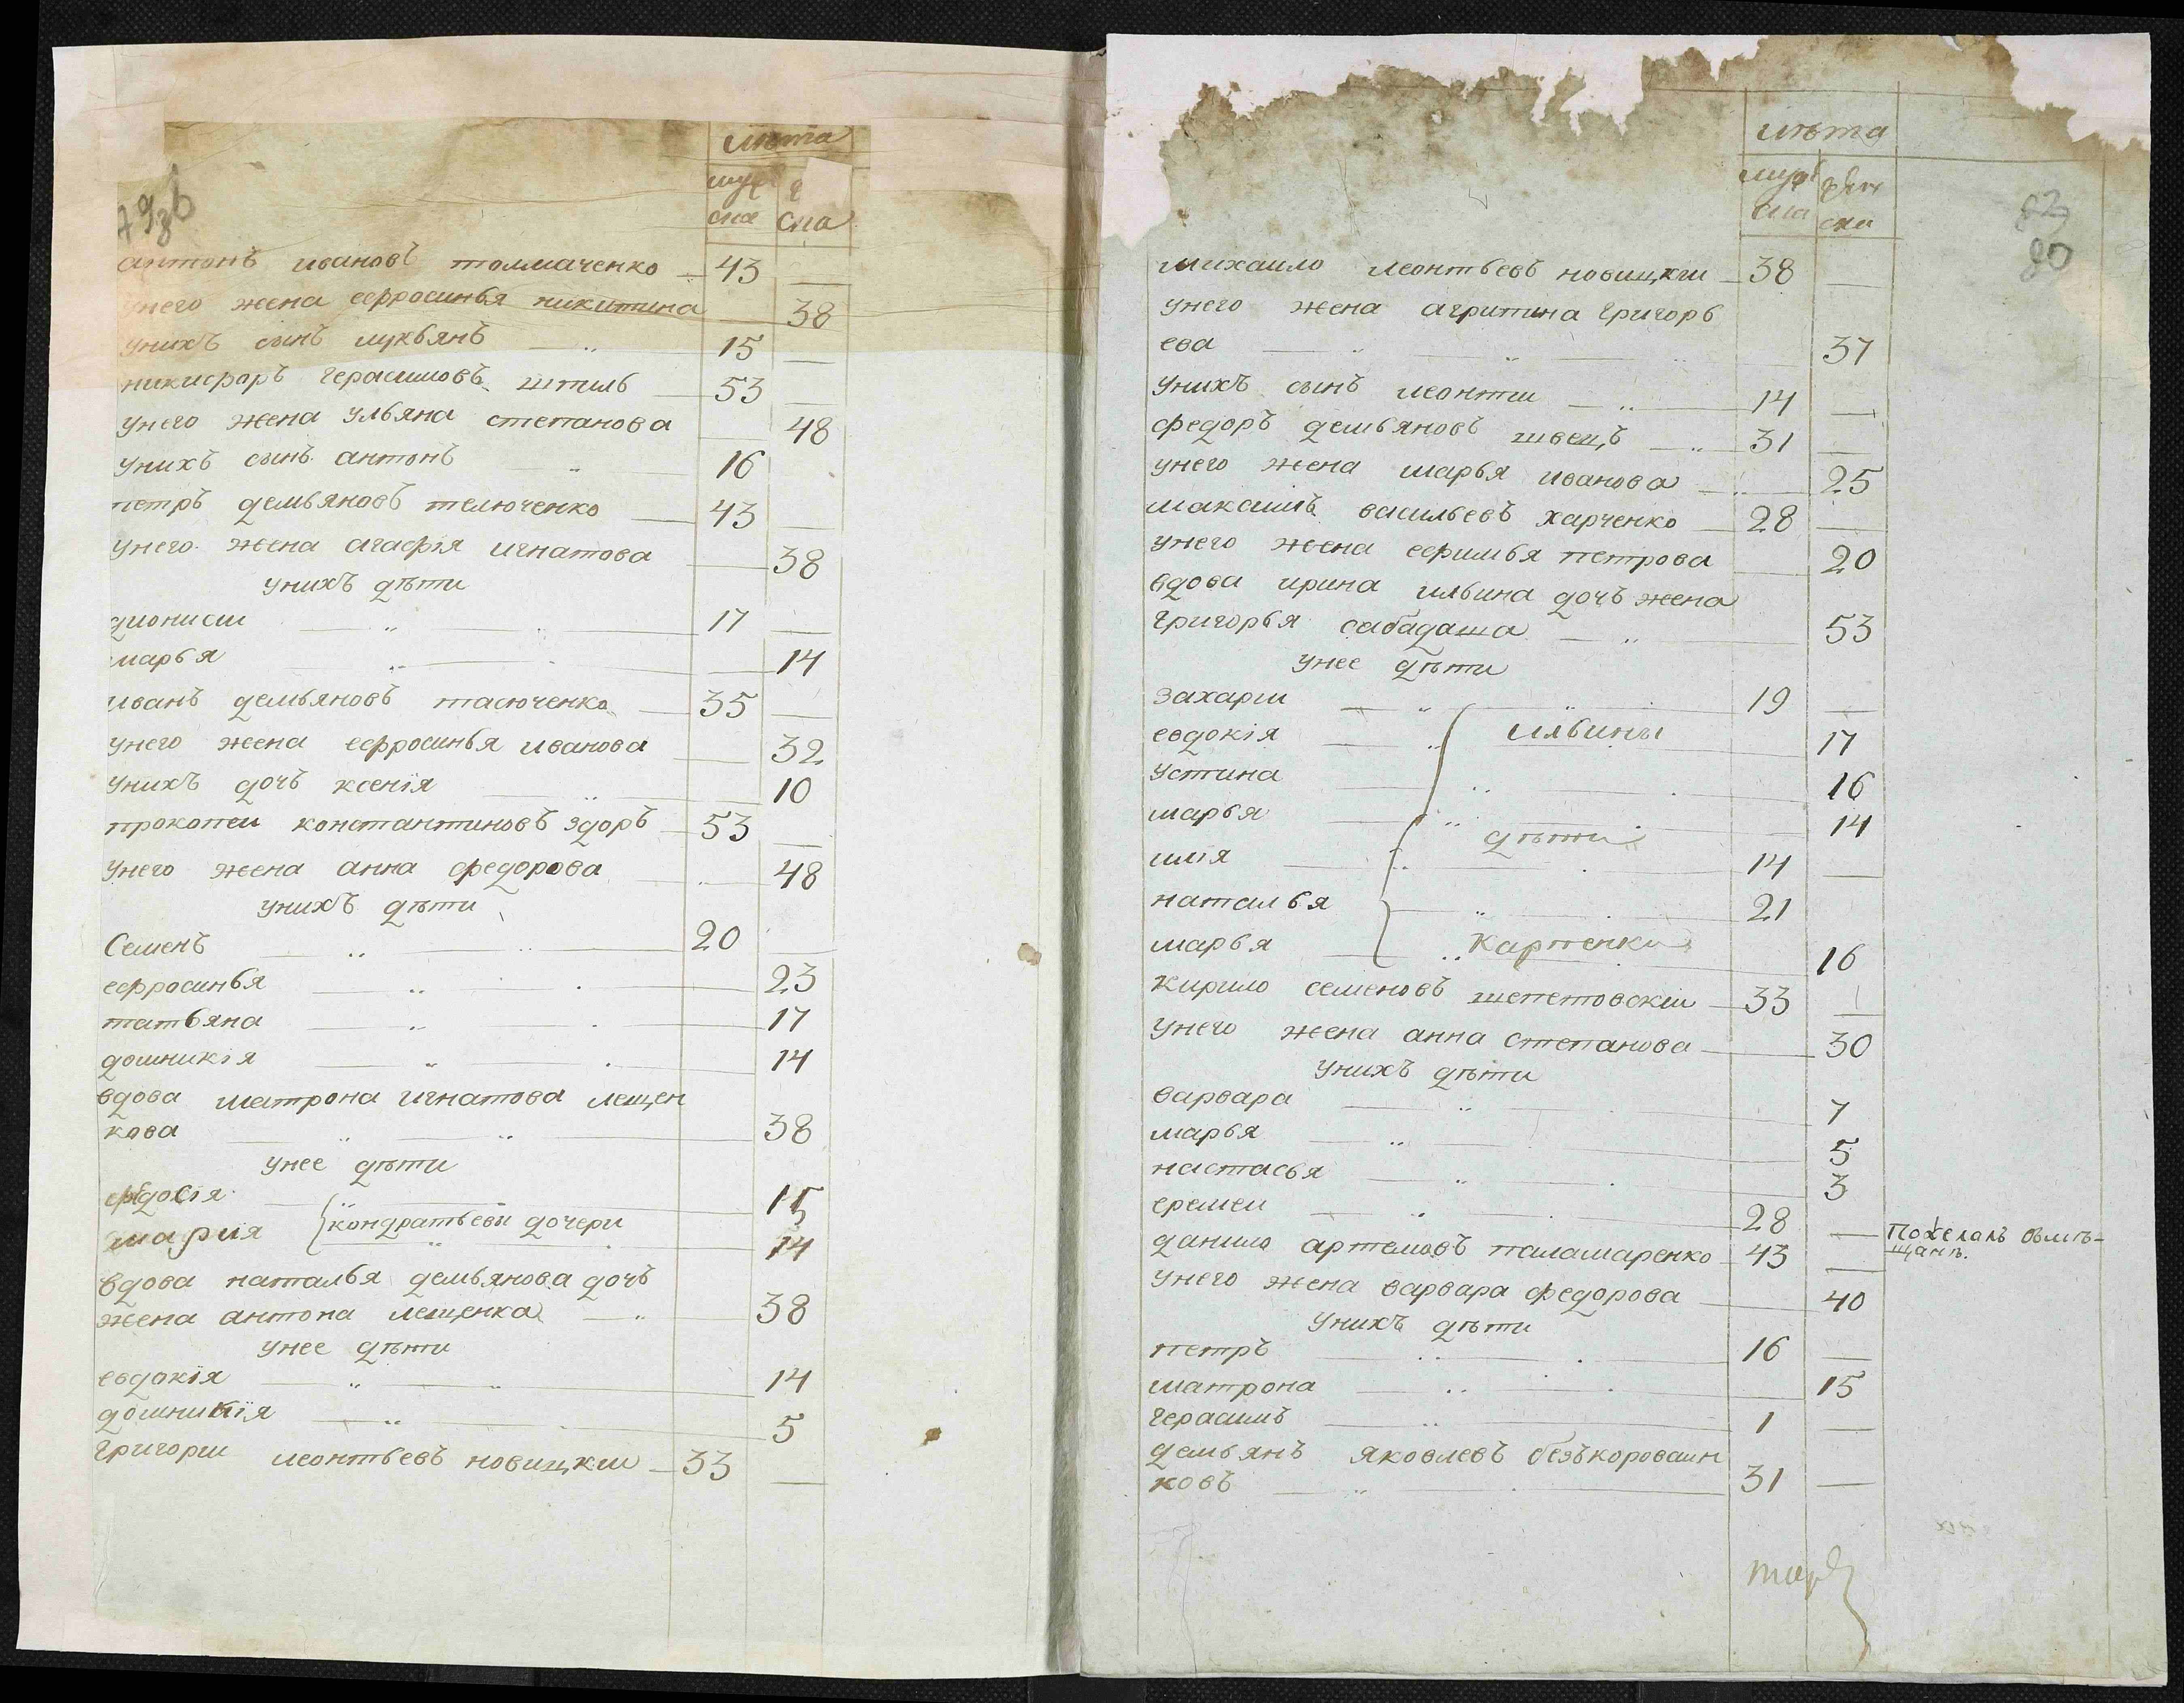 лѣта
муж
ска ска
антонъ ивановъ толмаченко 43 —
унего жена еѳросинья никитина 38
унихъ сынъ лукьянъ 15 —
никифоръ герасимовъ штиль 53 —
унего жена ульяна степанова 48
унихъ сынъ антонъ 16
петръ демьяновъ телюченко 43 —
унего жена агафія игнатова 38
унихъ дѣти
дионисии 17 —
марья 14
иванъ демьяновъ тасюченко 35 —
унего жена ефросинья иванова 32
унихъ дочъ ксенія 10
прокопеи константиновъ здоръ 53 —
унего жена анна федорова 48
унихъ дѣти
Семенъ 20 —
ефросинья 23
татьяна 17
домникія 14
вдова матрона игнатова лещен
кова 38
унее дѣти
федосія 15
мария кондратьевы дочери 14
вдова наталья демьянова дочъ
жена антона лещенка 38
унее дѣти
евдокія 14
домникія 5
григории леонтьевъ новицкии 33 —
лѣта
муж жен
ска ска
82
80
михаило леонтьевъ новицкии 38 —
унего жена агрипина григорь
ева 37
унихъ сынъ леонти 14 —
федоръ демьяновъ швецъ 31 —
унего жена марья иванова 25
максимъ васильевъ харченко 28 —
унего жена ефимья петрова 20
вдова ирина ильина дочъ жена
григорья сабадаша 53
унее дѣти
захарии 19 —
евдокія ильины 17
устина 16
марья 14
илія дѣти 14 —
наталья 21
марья Карпенки 16
кирило семеновъ шепетовскіи 33 —
унего жена анна степанова 30
унихъ дѣти
варвара 7
марья 5
настасья 3
еремеи 28 —
данило артемовъ паламаренко 43 —
унего жена варвара федорова 40
унихъ дѣти
петръ 16 —
матрона 15
герасимъ 1 —
демьянъ яковлевъ безъкороваин
ковъ 31 —